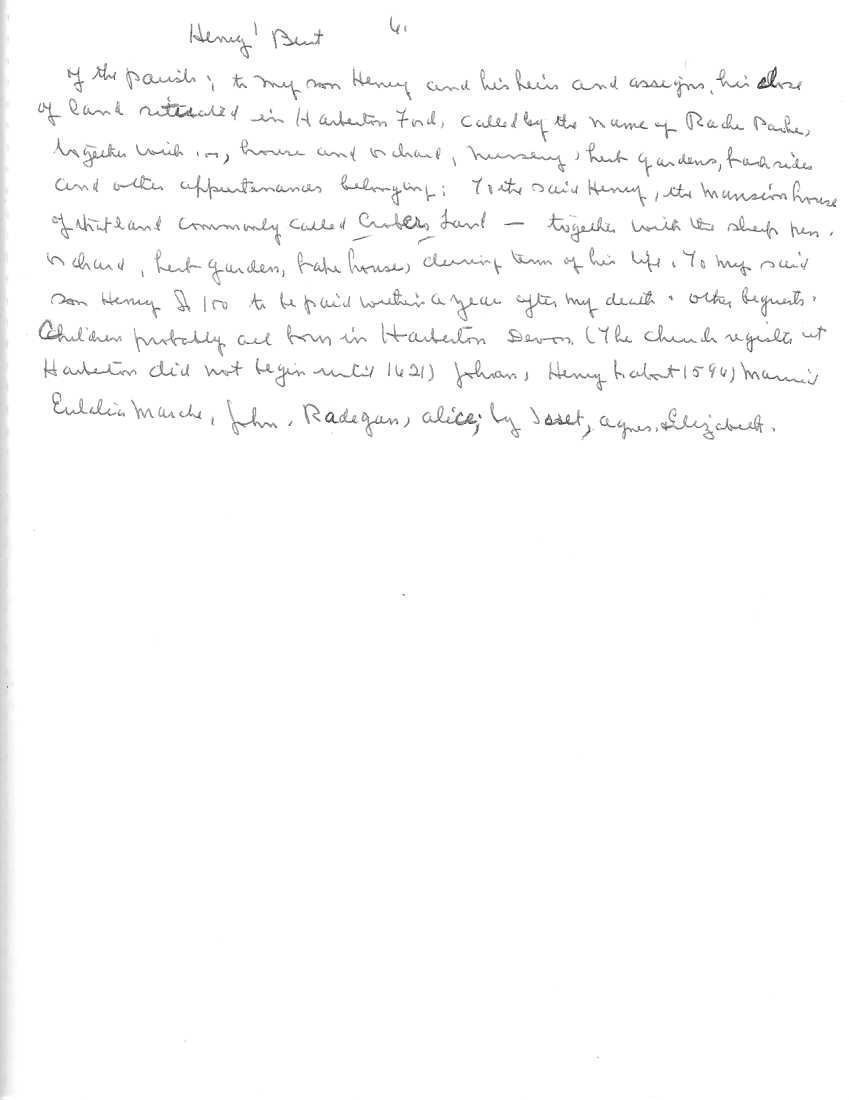 Henry¹ Bent 6.
of the parish; to my son Henry and his heirs and assigns, his close
of land situated in Harberton Ford, called by the name of Racke Parke,
together with house and orchard, nursery, herb gardens, backsides
and other appurtenances belonging; To the said Henry, the mansion house
of that land commonly called Land — together with the sheep pen,
orchard, herb garden, bake house, during term of his life. To my said
son Henry £100 to be paid within a year after my death. Other bequests.
Children probably all born in Harberton Devon. (The church register at
Harberton did not begin until 1621) Johan, Henry b about 1594) married
Eulalia Marche, John, Radegan, alice; by agnes, Elizabeth.